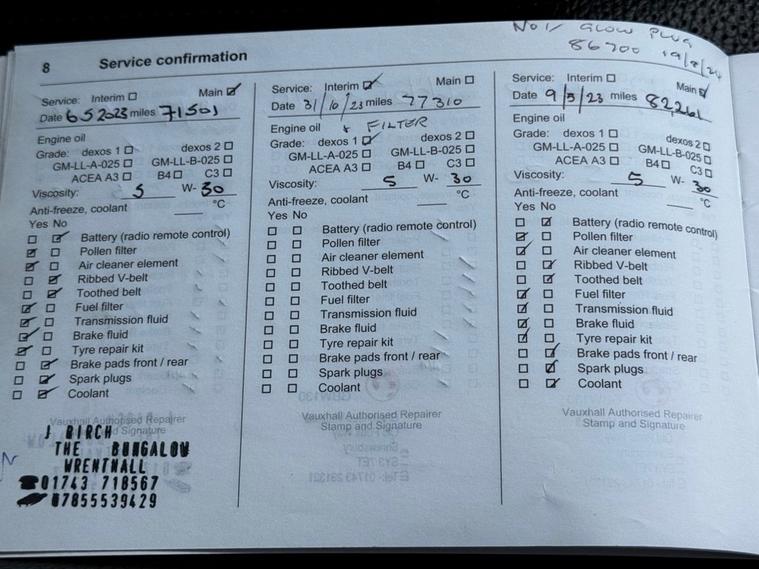 No1 GLOW PLUG
86700 19/8/24
8 Service confirmation
Service: Interim ☐ Main ☑
Date 6 5 2023 miles 71501
Engine oil
Grade: dexos 1 ☐ dexos 2 ☐
GM-LL-A-025 ☐ GM-LL-B-025 ☐
ACEA A3 ☐ B4 ☐ C3 ☐
Viscosity: 5 W- 30
Anti-freeze, coolant ___ °C
Yes No
☐ ☑ Battery (radio remote control)
☑ ☐ Pollen filter
☑ ☐ Air cleaner element
☐ ☑ Ribbed V-belt
☐ ☑ Toothed belt
☑ ☐ Fuel filter
☑ ☐ Transmission fluid
☑ ☐ Brake fluid
☑ ☐ Tyre repair kit
☐ ☑ Brake pads front / rear
☐ ☑ Spark plugs
☐ ☑ Coolant
Vauxhall Authorised Repairer
Stamp and Signature
J BIRCH
THE BUNGALOW
WRENTNALL
☎01743 718567
07855539429
Service: Interim ☑ Main ☐
Date 31/10/23 miles 77310
Engine oil + FILTER
Grade: dexos 1 ☑ dexos 2 ☐
GM-LL-A-025 ☐ GM-LL-B-025 ☐
ACEA A3 ☐ B4 ☐ C3 ☐
Viscosity: 5 W- 30
Anti-freeze, coolant ___ °C
Yes No
☐ ☐ Battery (radio remote control)
☐ ☐ Pollen filter
☐ ☐ Air cleaner element
☐ ☐ Ribbed V-belt
☐ ☐ Toothed belt
☐ ☐ Fuel filter
☐ ☐ Transmission fluid
☐ ☐ Brake fluid
☐ ☐ Tyre repair kit
☐ ☐ Brake pads front / rear
☐ ☐ Spark plugs
☐ ☐ Coolant
Vauxhall Authorised Repairer
Stamp and Signature
Service: Interim ☐ Main ☑
Date 9/5/23 miles 82261
Engine oil
Grade: dexos 1 ☐ dexos 2 ☐
GM-LL-A-025 ☐ GM-LL-B-025 ☐
ACEA A3 ☐ B4 ☐ C3 ☐
Viscosity: 5 W- 30
Anti-freeze, coolant ___ °C
Yes No
☐ ☑ Battery (radio remote control)
☑ ☐ Pollen filter
☑ ☐ Air cleaner element
☐ ☑ Ribbed V-belt
☐ ☑ Toothed belt
☑ ☐ Fuel filter
☑ ☐ Transmission fluid
☑ ☐ Brake fluid
☑ ☐ Tyre repair kit
☐ ☑ Brake pads front / rear
☐ ☑ Spark plugs
☐ ☑ Coolant
Vauxhall Authorised Repairer
Stamp and Signature